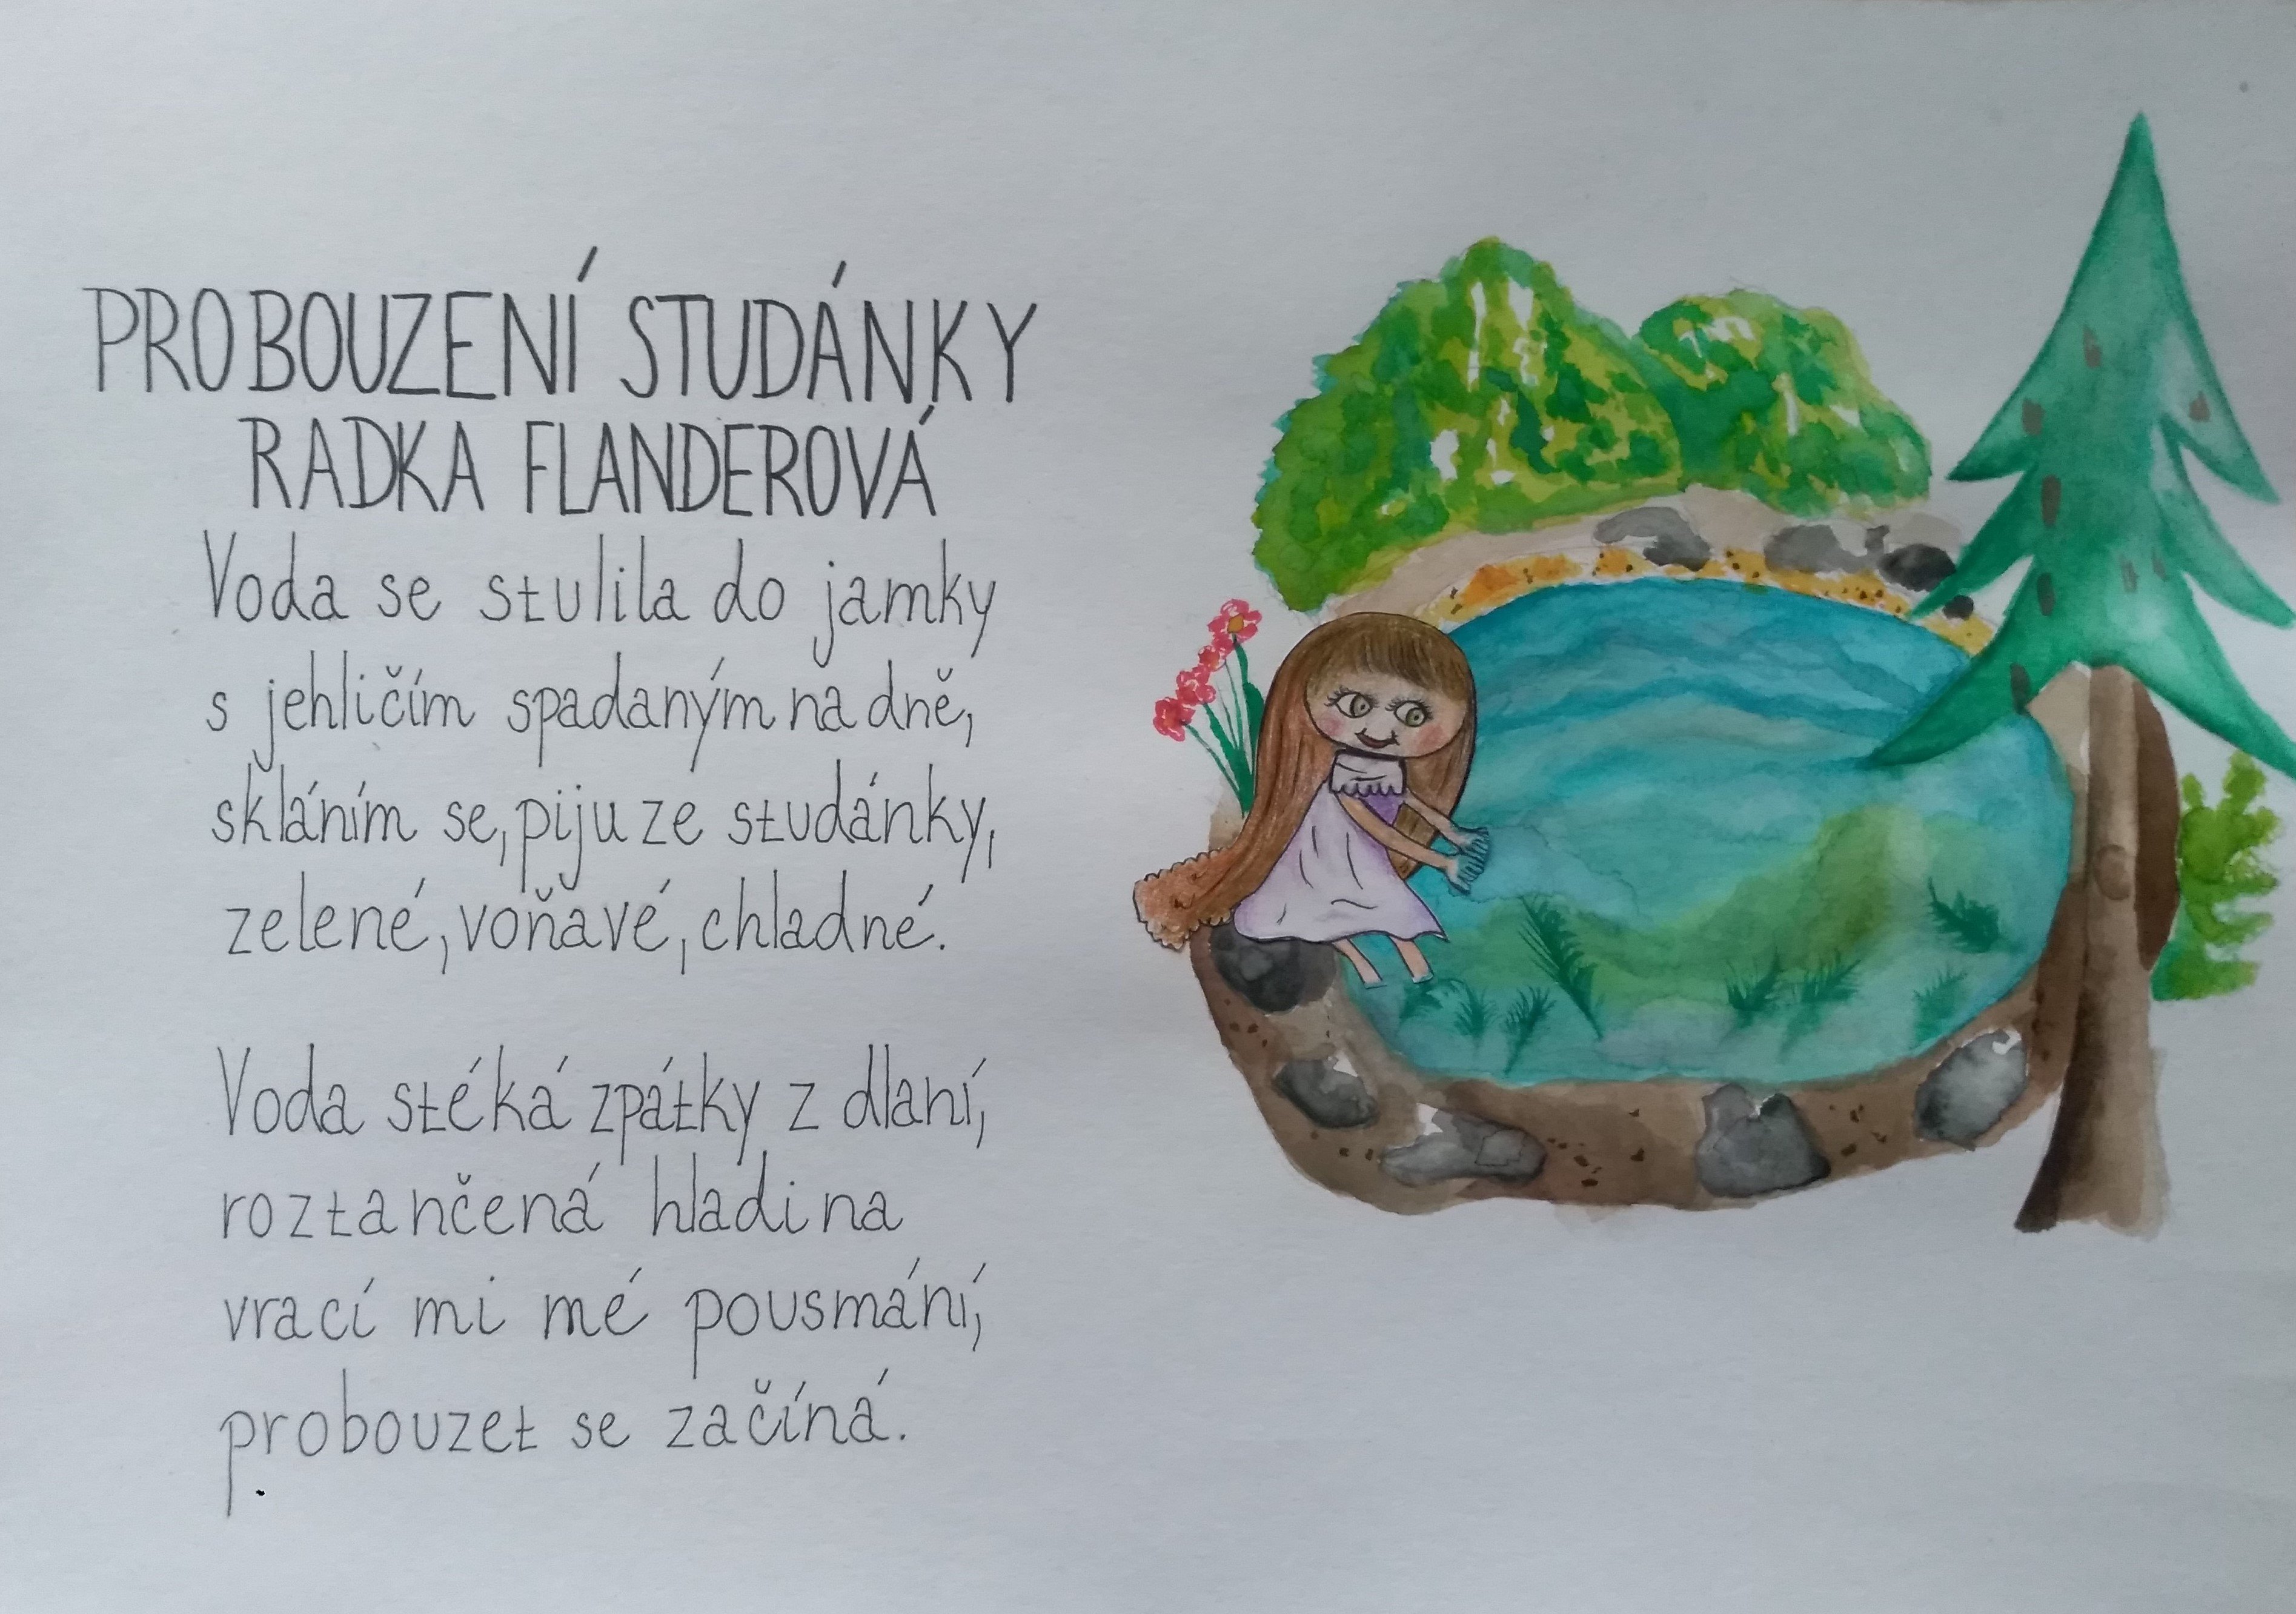 PROBOUZENÍ STUDÁNKY
RADKA FLANDEROVÁ
Voda se stulila do jamky
s jehličím spadaným na dně,
skláním se, piju ze studánky,
zelené, voňavé, chladné.
Voda stéká zpátky z dlaní,
roztančená hladina
vrací mi mé pousmání,
probouzet se začíná.